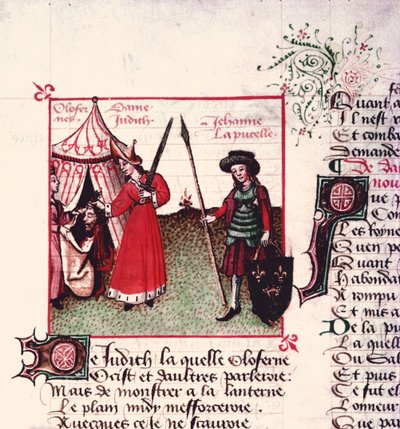 Olofer
nes.
Dame
Judith
Jehanne
La pucelle.
De Judith la quelle Oloferne
Ocist et daultres parleroie:
Mais de monstrer a la lanterne
Le plain midy mefforceroie.
Auecques ce je ne scauroie
Quant a
Il nest v
Et comba
Demande
De da
nou
Que p
Con
Les royne
Quen po
Quant
Habondat
A rompu
Et mis a
De la pu
A quell
Ou Sal
Et puis
Ce fut el
Lonneur